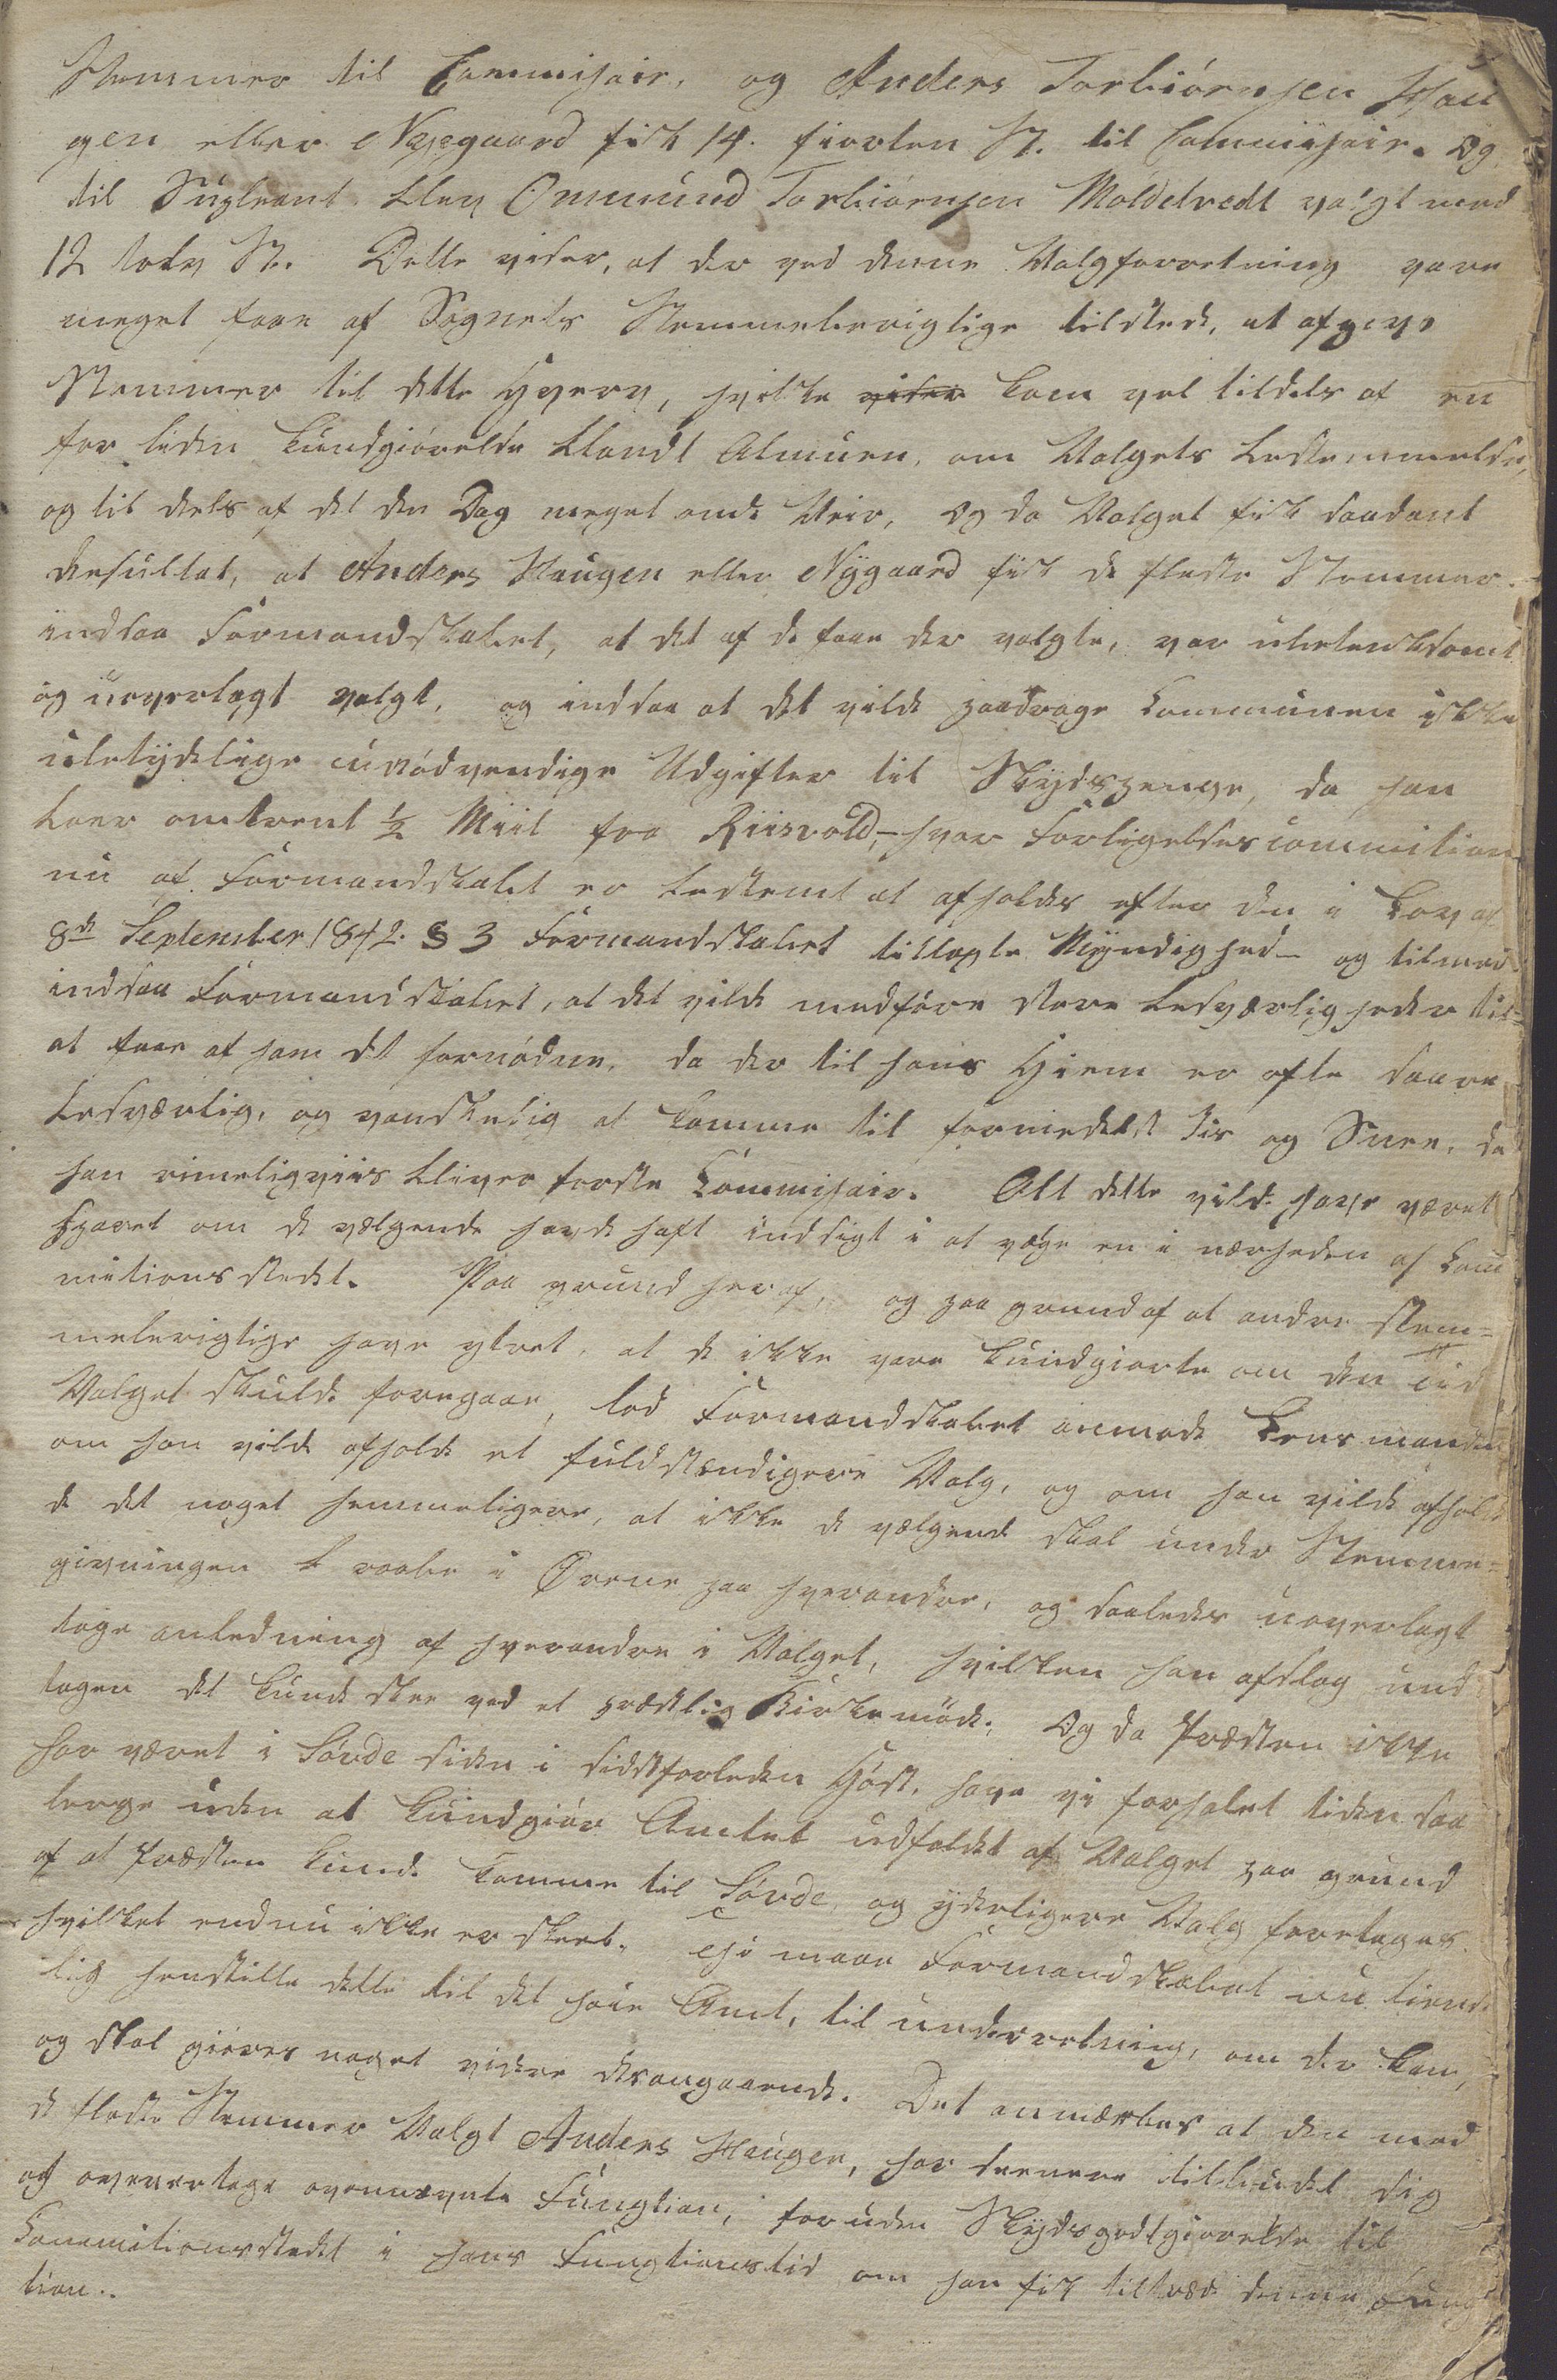 Stemmer til Commisair, og Anders Torbiörnsen Hau
gen eller Nygaard fik 14. fiorten St. til Commisair. Og
til Supleant blev Ommund Torbiörnsen Moldetvedt valgt med
12 tolv St. Dette viser, at der ved denne Valgforretning vare
meget faae af Sognets Stemmeberigtige tilstede, at afgive
Stemmer til dette Hverv, hvilke viser kom vel tildels af en
for liden Kundgiörelse blandt Almuen, om Valgets bestemmelse,
og til deels af det den Dag meget onde Veir, Og da Valget fik saadant
Resultat, at Anders Haugen eller Nÿgaard fik de fleste Stemmer.
indsaa Formandskabet, at det af de faae der valgte, var ubetenksomt
og uoverlagt valgt, og indsaa at det vilde paadrage Communen ikke
ubetydelige unödvendige Udgifter til Skydspenge, da han
boer omtrent ½ Miil fra Riisvold, – hvor Forligelsescommition
nu af Formandskabet er bestemt at afholdes efter den i Lov af
8de September 1842. § 3 Formandskabet tillagte Myndighed – og tilmed
indsaa Formandskabet, at det vilde medföre store besværligheder til
at faae af ham det fornödne, da der til hans Hiem er ofte saare
besværlig, og vanskelig at komme til formedelst Iis og Snee, da
han rimeligviis bliver förste Commisair. Alt dette vilde have været
sparet om de vælgende havde haft indsigt i at vælge en i nærheden af Com
mitionsstedet. Paa grund heraf, og paa grund af at andre stem=
meberigtige have ytret, at de ikke vare kundgiorte om den tid
Valget skulde foregaae, lod Formandskabet anmode Lensmanden
om han vilde afholde et fuldstændigere Valg, og om han vilde afhol
de det noget hemmeligere, at ikke de vælgende skal under Stemme=
givningen raabe i Ørene paa hverandre, og saaledes uoverlagt
tage anledning af hverandre i Valget, hvilken han afslog und
tagen det kunde skee ved et prestlig Kirkemöde; Og da Præsten ikke
har været i Sövde siden i sidstforleden Höst, have vi forhalet tiden saa
lenge uden at kundgiöre Amtet udfaldet af Valget paa grund
af at Præsten kunde komme til Sövde, og ydeligere Valg foretages.
hvilket endnu ikke er skeet. Thi maae Formandskabet nu tienst
lig henstille dette til det höie Amt, til underretning, om der kan,
og skal giöres noget videre desangaaende. Det anmærkes at den med
de fleste Stemmer Valgt Anders Haugen, har senere tilbudet sig
at overtage ovennævnte Fungtion, foruden Skydsgodtgiörelse til
Commitionsstedet i hans Fungtionstid om han fik tiltræde denne Fung
tion.